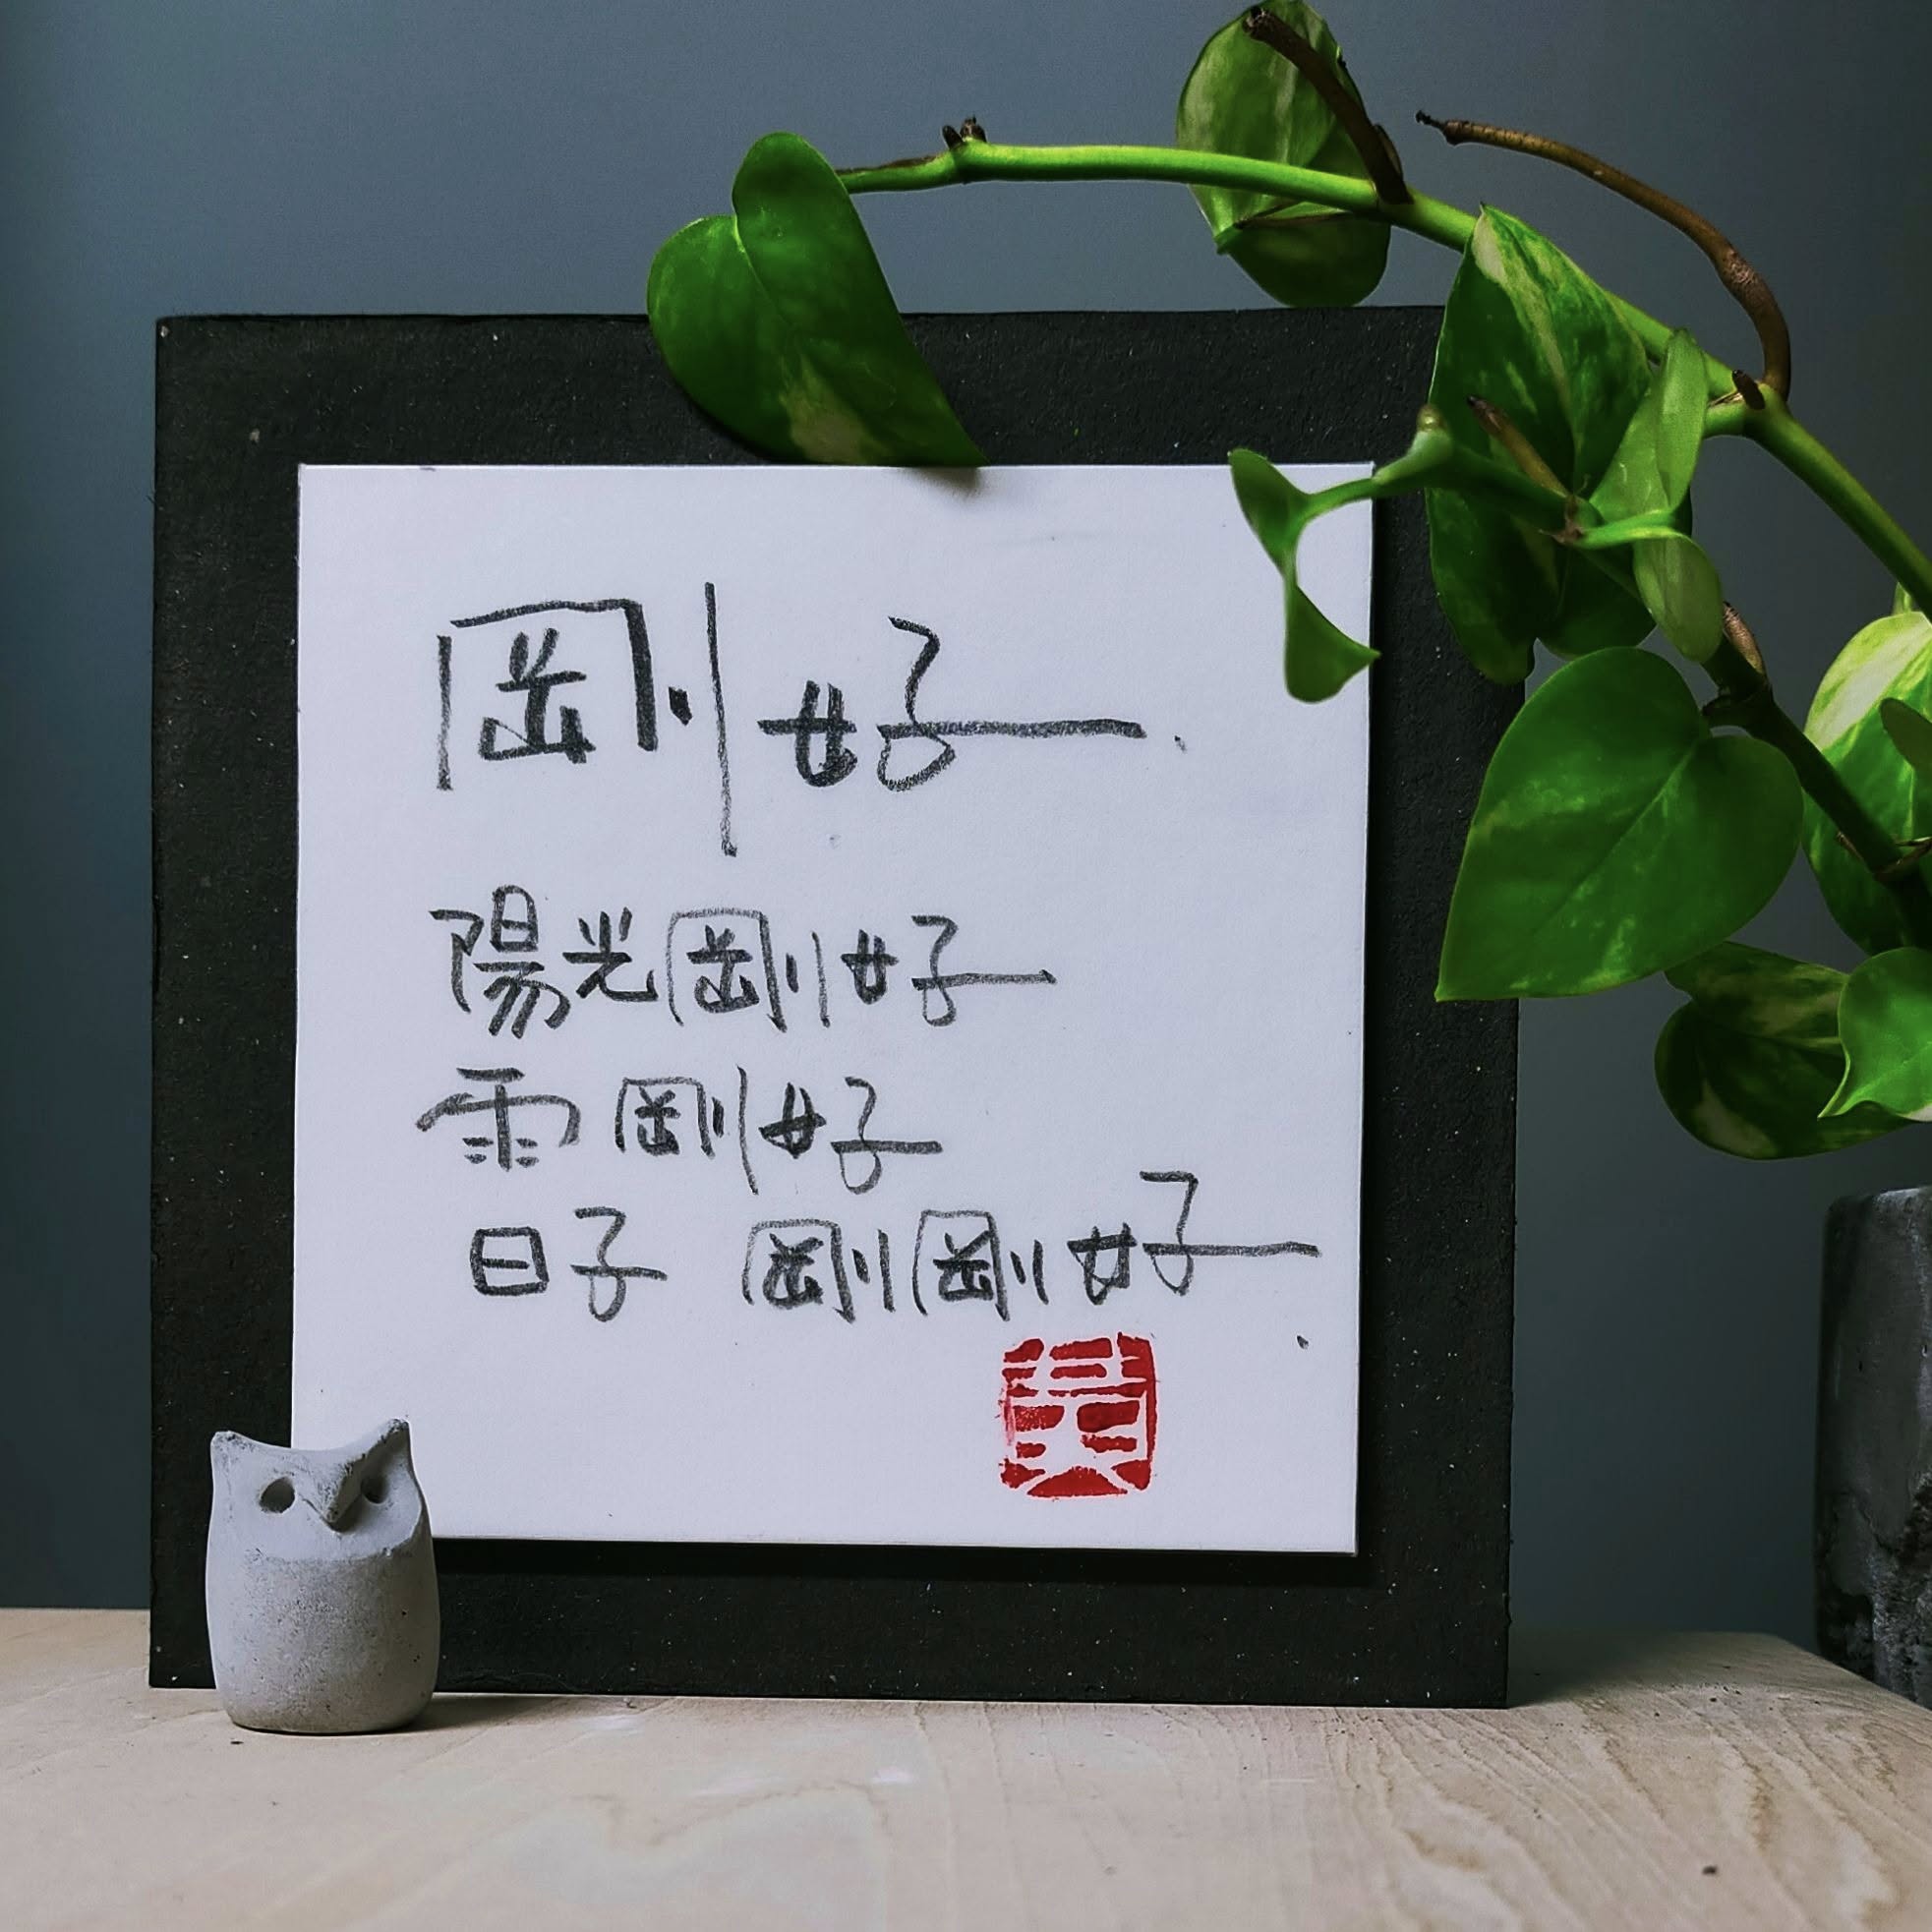 剛好
陽光剛好
雨剛好
日子剛剛好